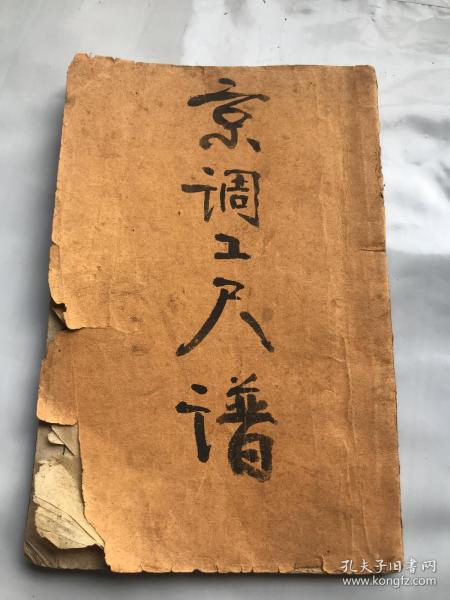 京调工尺谱
孔夫子旧书网
www.kongfz.com